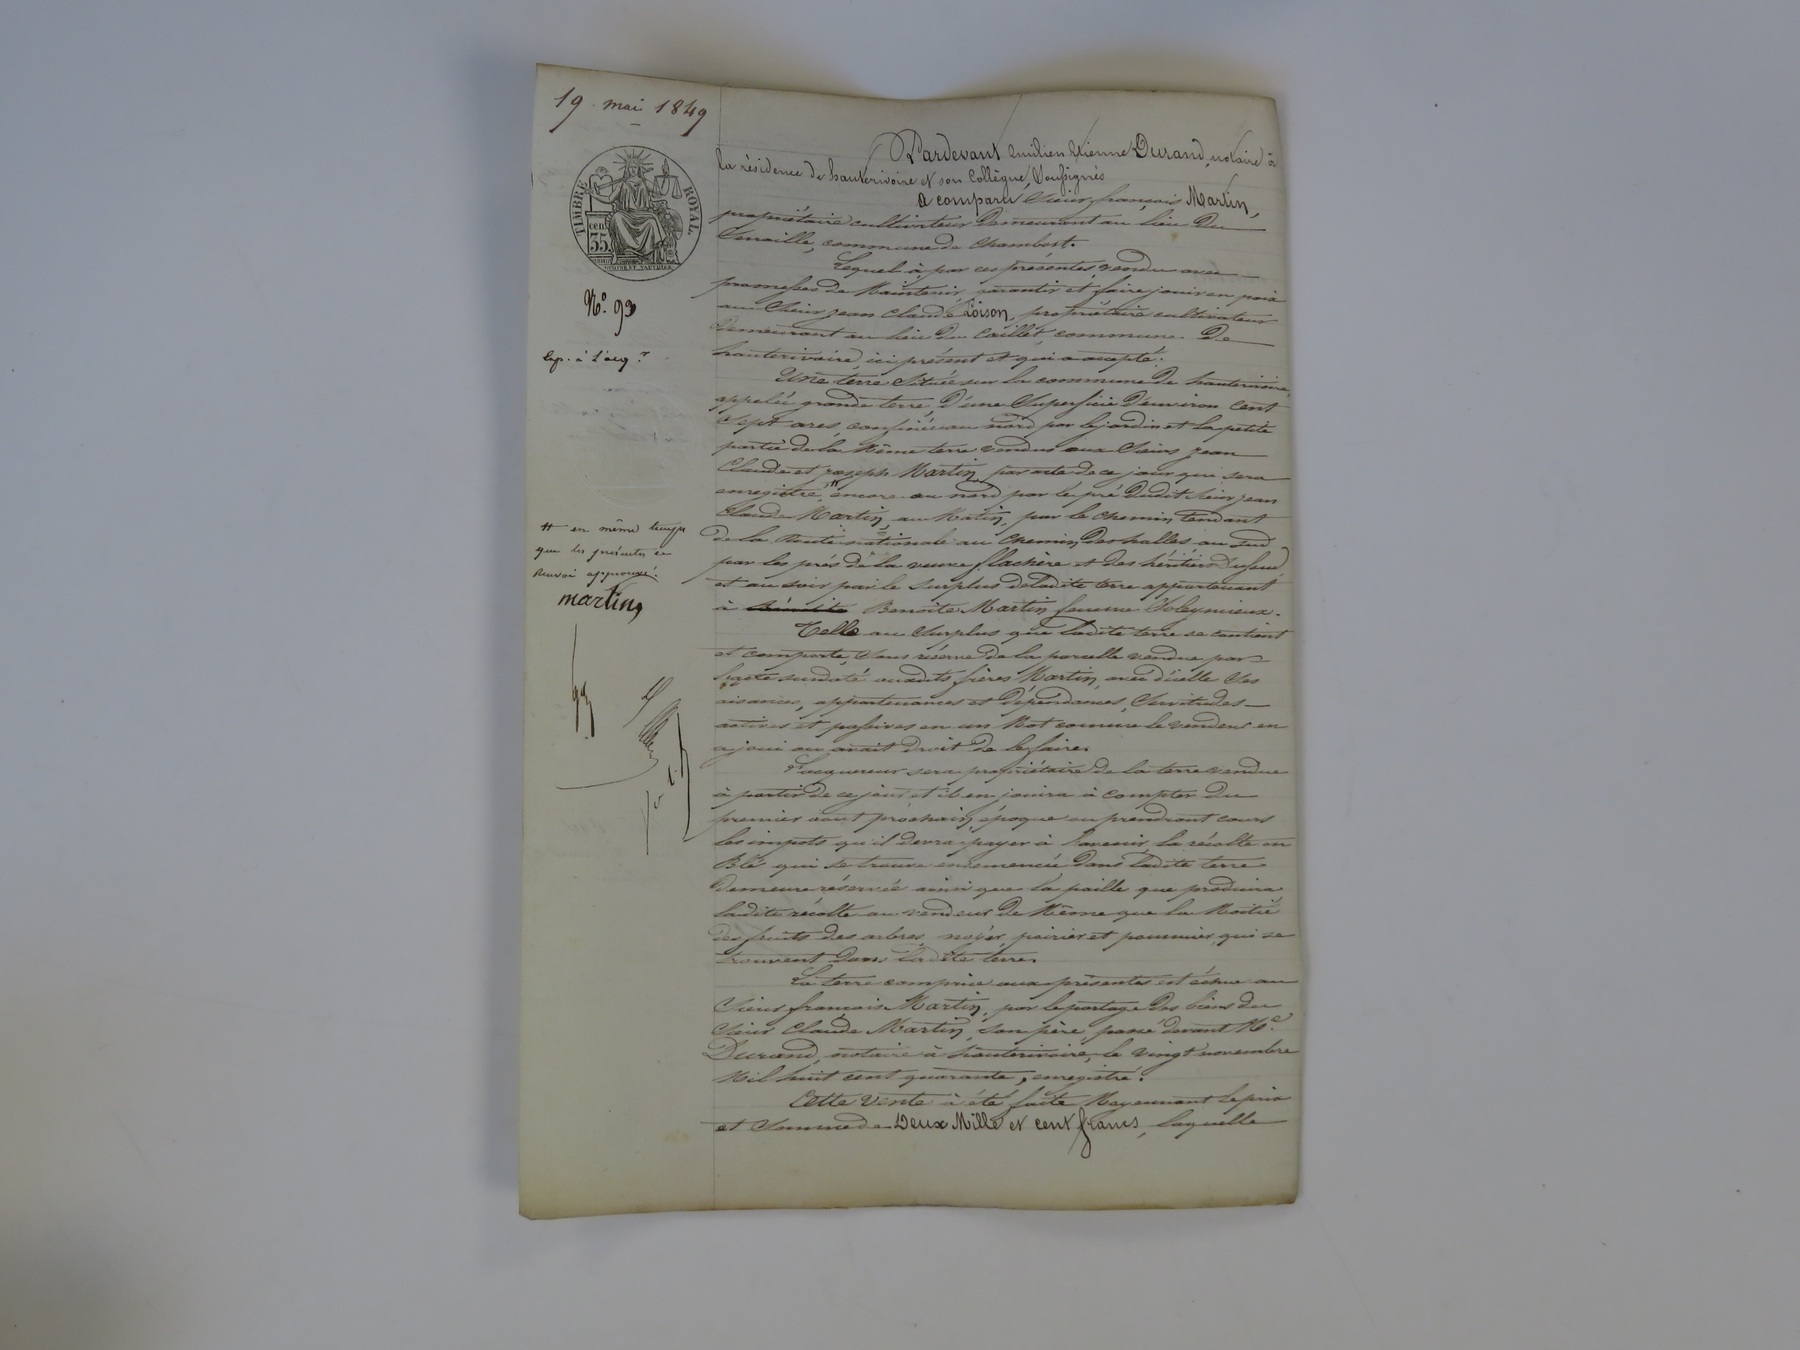 19. mai 1849
TIMBRE ROYAL.
cen.
35
N.º 93
Exp. à l'acq.r
# en même temps
que les présentes ce
renvoi approuvé.
martin
Pardevant Emilien Etienne Durand, notaire à
la résidence de hauterivoire et son Collègue, Soussignés
a comparu Sieur françois Martin,
propriétaire cultivateur demeurant au lieu du
commune de Chambost.
Lequel à par ces présentes, vendu avec
promesses de Maintenir, garantir et faire jouir en paix
au Sieur Jean Claude Loison, propriétaire cultivateur
demeurant au lieu du Caillet, commune de
hauterivoire, ici présent et qui a accepté:
Une terre Située sur la commune de hauterivoire,
appelée grande terre, d'une Superficie d'environ Cent
Sept ares, confinée au nord par le jardin et la petite
partie de la Même terre vendus aux Sieurs Jean
Claude et Joseph Martin, par acte de ce jour qui sera
enregistré, # encore au nord par le pré dudit Sieur Jean
Claude Martin, au Matin, par le chemin tendant
de la Route nationale au chemin des halles au sud
par les prés de la veuve flachère et des héritiers
et au soir par le surplus de ladite terre appartenant
à Benoite Martin femme
Telle au Surplus que ladite terre se contient
et comporte, Sans réserve de la parcelle vendue par
l'acte susdaté auxdits frères Martin, avec d'icelle Ses
aisances, appartenances et Dépendances, Servitudes
actives et passives en un Mot comme le vendeur en
a joui ou avait droit de le faire.
L'acquereur sera propriétaire de la terre vendue
à partir de ce jour et il en jouira à compter du
premier août prochain, époque où prendront cours
les impots qu'il devra payer à l'avenir, la récolte en
Blé qui se trouve ensemencée dans ladite terre
Demeure réservée ainsi que la paille que produira
ladite récolte au vendeur De Même que la Moitié
des fruits des arbres, noyer, poirier et pommier, qui se
trouvent dans ladite terre.
La terre comprise aux présentes est échue au
Sieur françois Martin, par le partage Des biens du
Sieur Claude Martin, son père, passé devant M.e
Durand, notaire à hauterivoire, le vingt novembre
Mil huit cent quarante, enregistré.
Cette vente à été faite Moyennant le prix
et Somme de Deux Mille et cent francs, laquelle